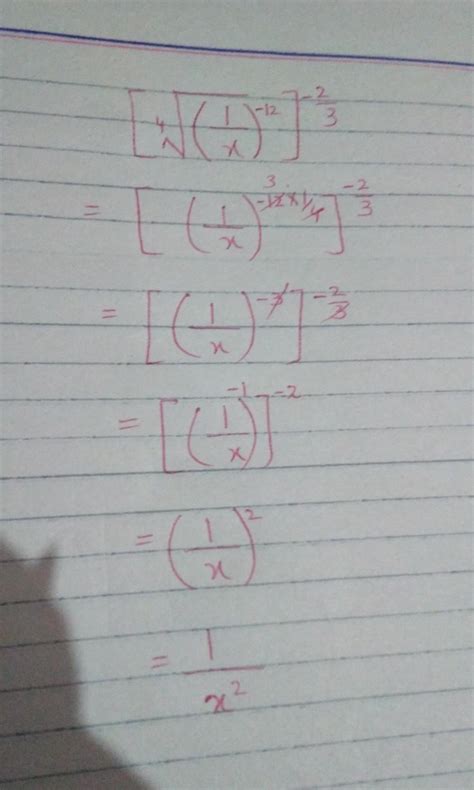 [⁴√(1/x)⁻¹²]^(-2/3)
= [(1/x)^(-12×1/4) 3]^(-2/3)
= [(1/x)^(-3)]^(-2/3)
= [(1/x)⁻¹]⁻²
= (1/x)²
= 1/x²